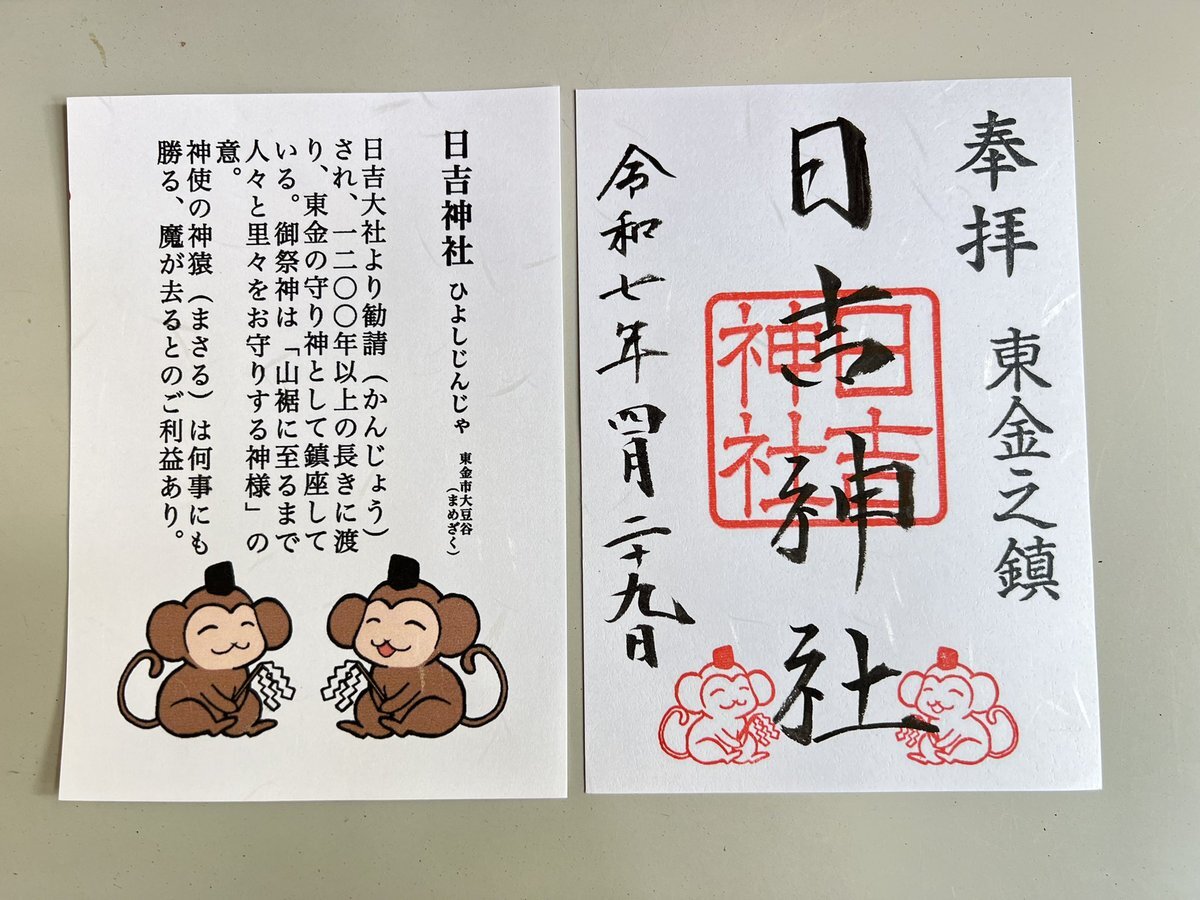 日吉神社 ひよしじんじゃ 東金市大豆谷
(まめざく)
日吉大社より勧請(かんじょう)
され、一二〇〇年以上の長きに渡
り、東金の守り神として鎮座して
いる。御祭神は「山裾に至るまで
人々と里々をお守りする神様」の
意。
神使の神猿(まさる)は何事にも
勝る、魔が去るとのご利益あり。
奉拝 東金之鎮
日吉神社
日吉
神社
令和七年四月二十九日